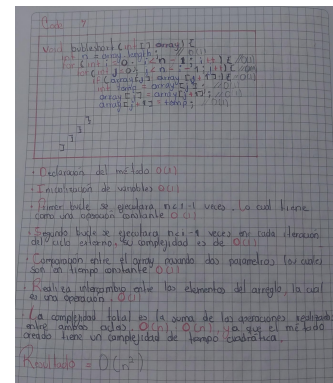 Code 9
void bubbleSort (int[] array) {
int n = array.length; // O(1)
for (int i=0; i<n-1; i++) { // O(n)
for (int j=0; j<n-i-1; j++) { // O(n)
if (array[j] > array[j+1]) { // O(1)
int temp = array[j]; // O(1)
array[j] = array[j+1]; // O(1)
array[j+1] = temp; // O(1)
}
}
}
}
• Declaración del método O(1)
• Inicialización de variables O(1)
• Primer bucle se ejecutara, n<i-1 veces. Lo cual tiene
como una operación constante O(1)
• Segundo bucle se ejecutara, n<i-1 veces en cada iteracion
del ciclo externo, su complejidad es de O(1)
• Comparacion entre el array pasando dos parametros los cuales
son en tiempo constante O(1)
• Realiza intercambio entre los elementos del arreglo, la cual
es una operacion. O(1)
La complejidad total es la suma de las operaciones realizadas
entre ambos ciclos. O(n), O(n), ya que el metodo
creado tiene un complejidad de tiempo cuadratica.
Resultado = O(n²)